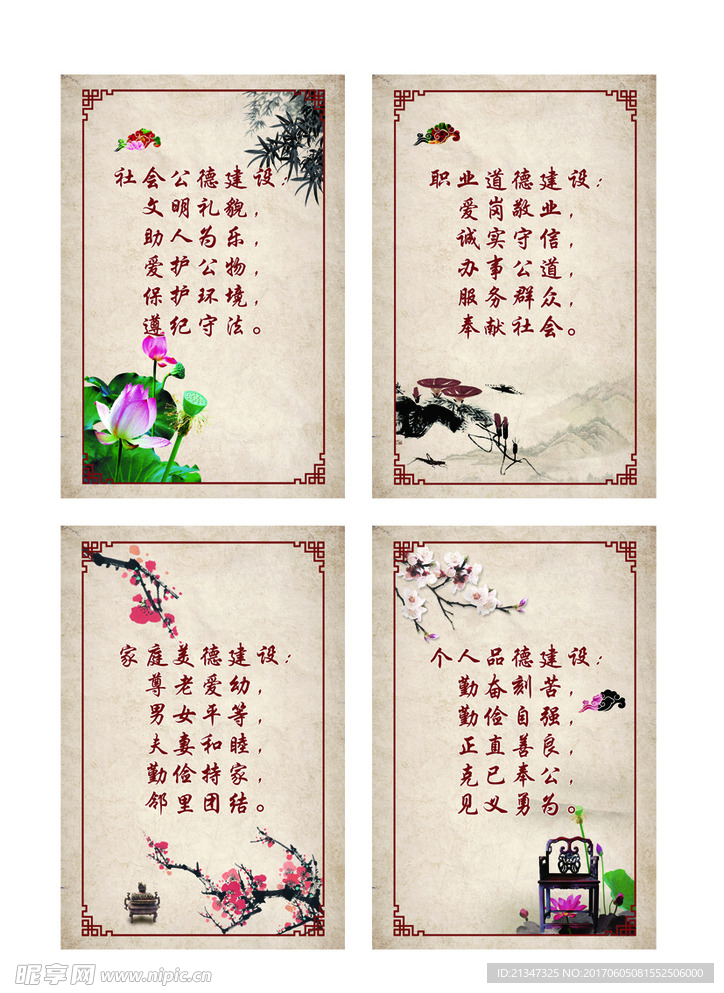 社会公德建设：
文明礼貌，
助人为乐，
爱护公物，
保护环境，
遵纪守法。
职业道德建设：
爱岗敬业，
诚实守信，
办事公道，
服务群众，
奉献社会。
家庭美德建设：
尊老爱幼，
男女平等，
夫妻和睦，
勤俭持家，
邻里团结。
个人品德建设：
勤奋刻苦，
勤俭自强，
正直善良，
克已奉公，
见义勇为。
昵享网 www.nipic.cn
ID:21347325 NO:20170605081552506000